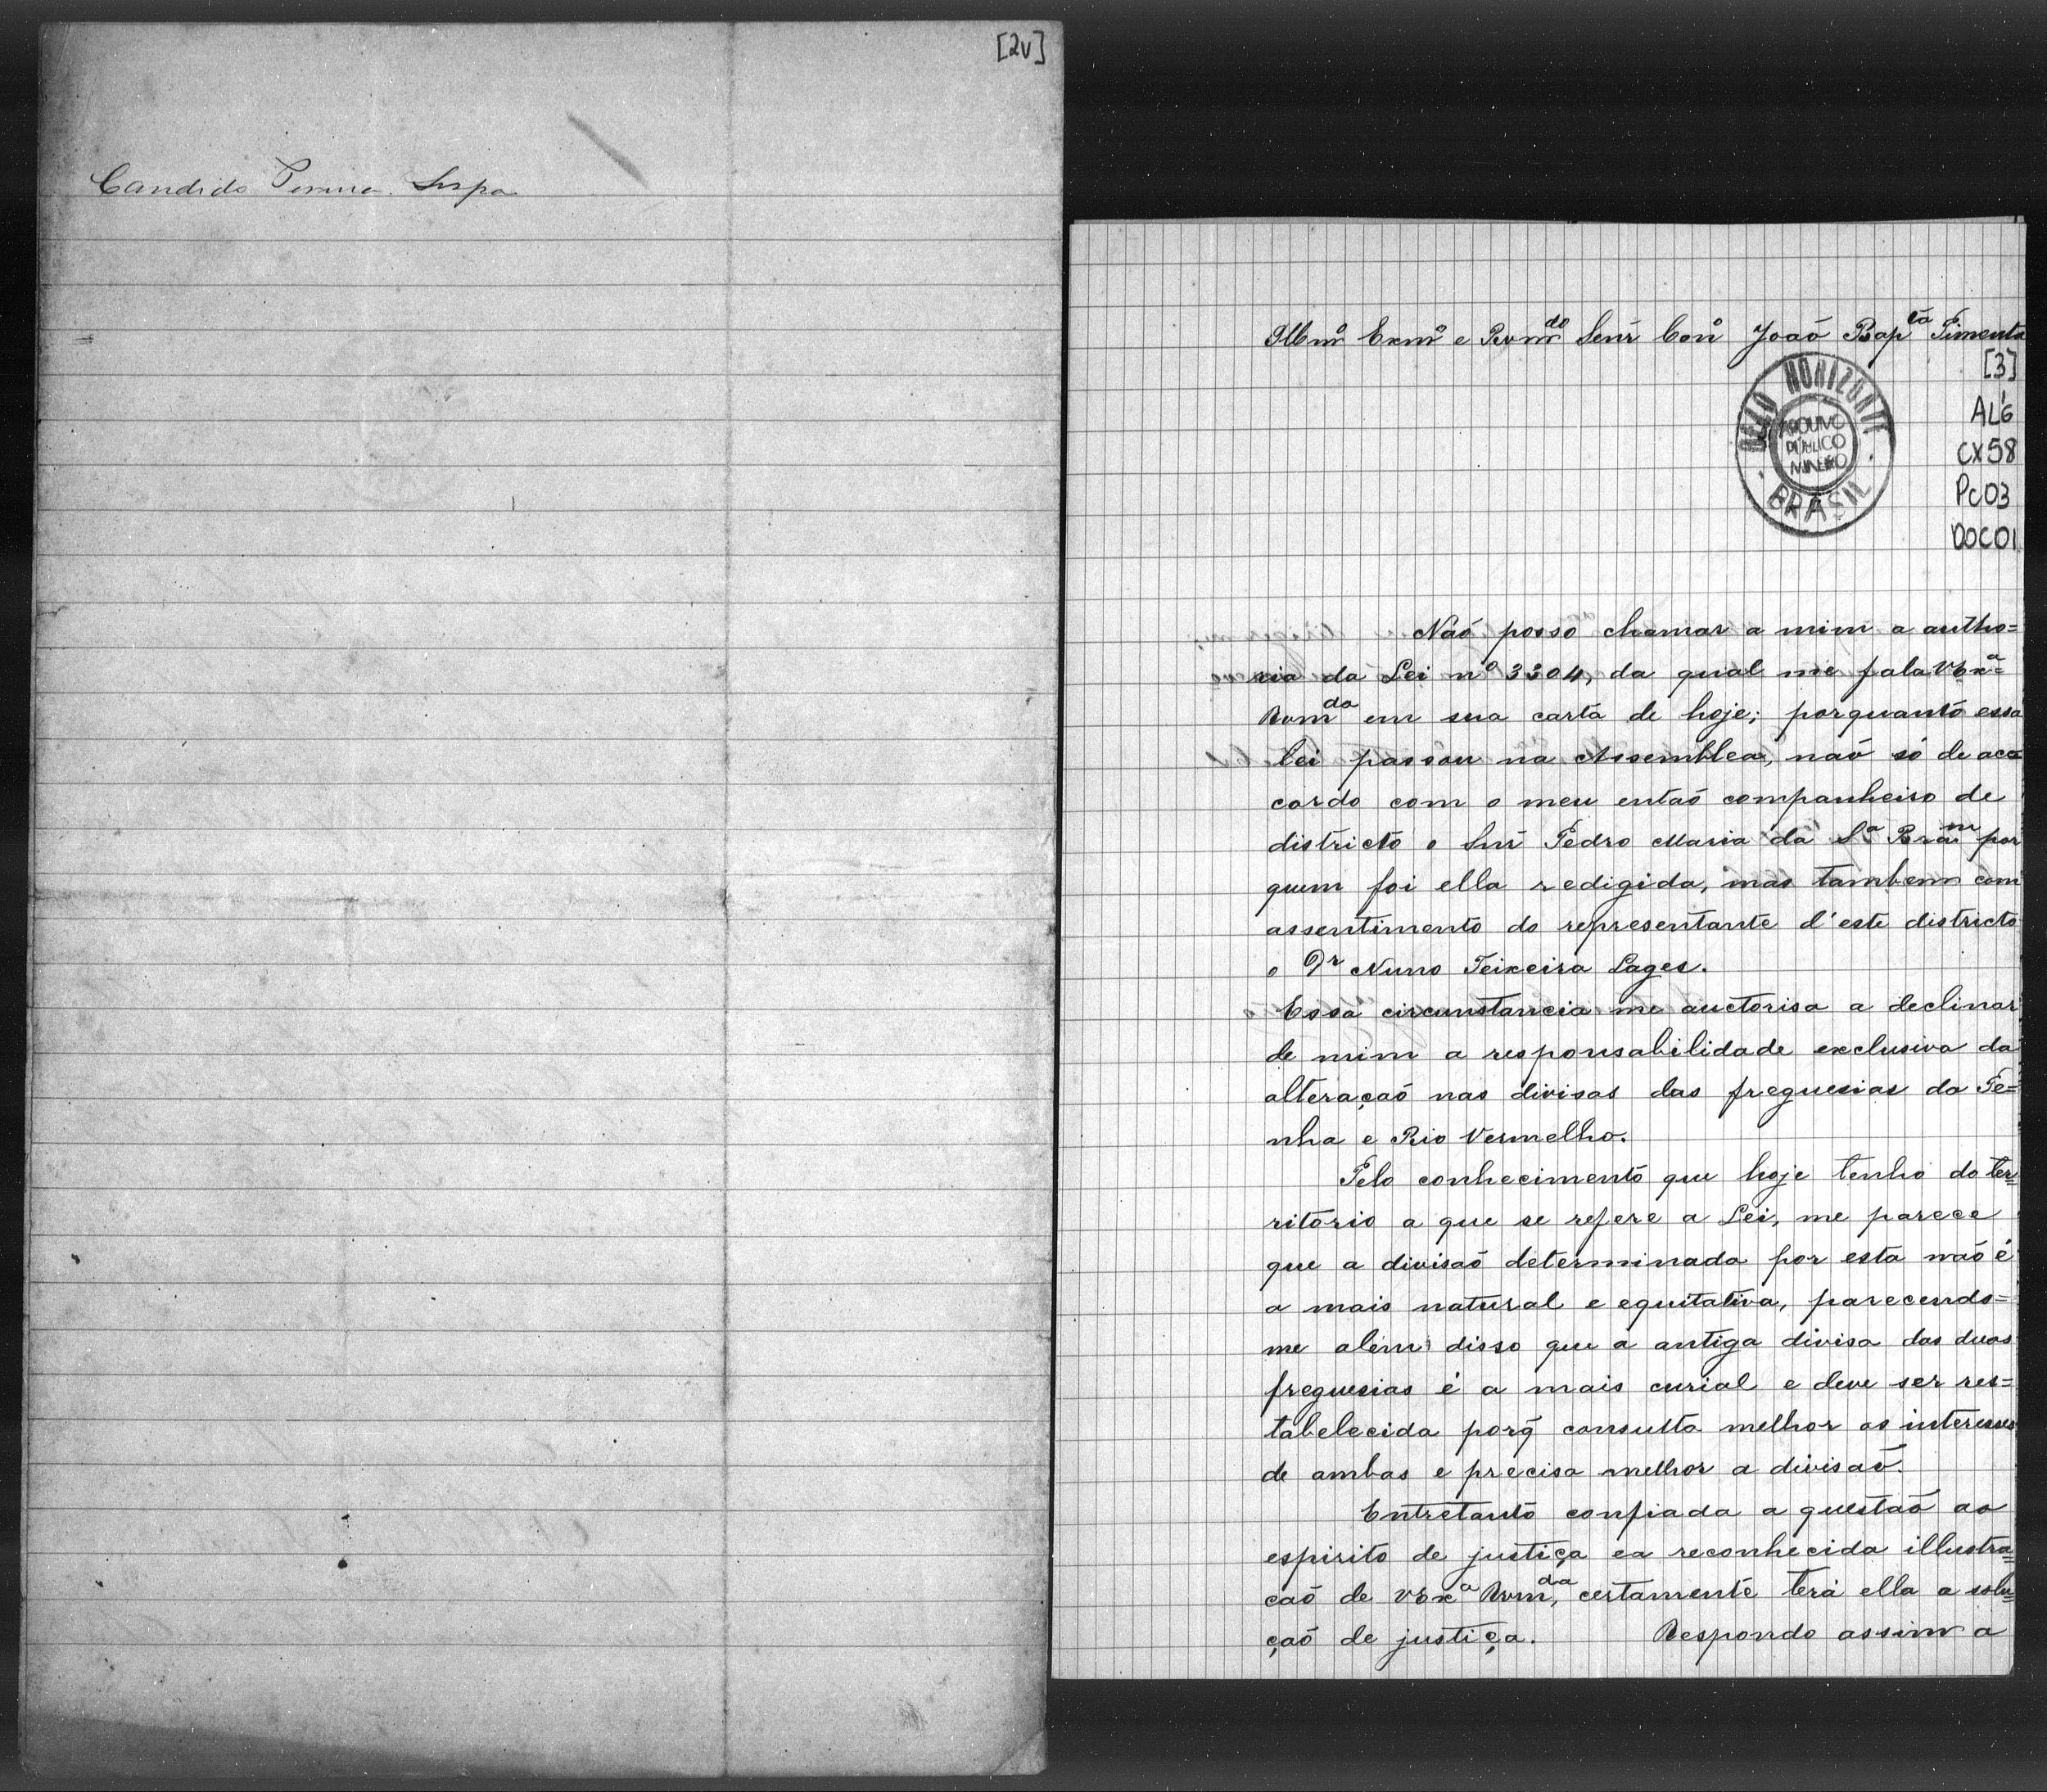 [2v]
Candido
Illmº Exmº e Rvmdo Senr Conº João Bapta Pimenta
[3]
AL6
CX58
Pc03
DOC01
BELLO HORIZONTE
ARQUIVO
PÚBLICO
MINEIRO
BRASIL
Naõ posso chamar a mim a autho=
ria da Lei nº 3304, da qual me fala VExª=
Rvmda em sua carta de hoje; porquanto essa
lei passou na Assemblea, naõ só de ac=
cordo com o meu entaõ companheiro de
districto o Snr Pedro Maria da Sª Bram por
quem foi ella redigida, mas tambem com
assentimento do representante d'este districto
o Dr Nuno Teixeira Lages.
Essa circunstancia me auctorisa a declinar
de mim a responsabilidade exclusiva da
alteraçaõ nas divisas das freguesias da Pe=
nha e Rio Vermelho.
Pelo conhecimento que hoje tenho do ter=
ritorio a que se refere a Lei, me parece
que a divisaõ determinada por esta naõ é
a mais natural e equitativa, parecendo=
me alem disso que a antiga divisa das duas
freguesias é a mais curial e deve ser res=
tabelecida porq̃ consulta melhor os interesses
de ambas e precisa melhor a divisaõ.
Entretanto confiada a questaõ ao
espirito de justiça ea reconhecida illustra=
çaõ de VExª Rvmda, certamente terá ella a solu=
çaõ de justiça. Respondo assim a